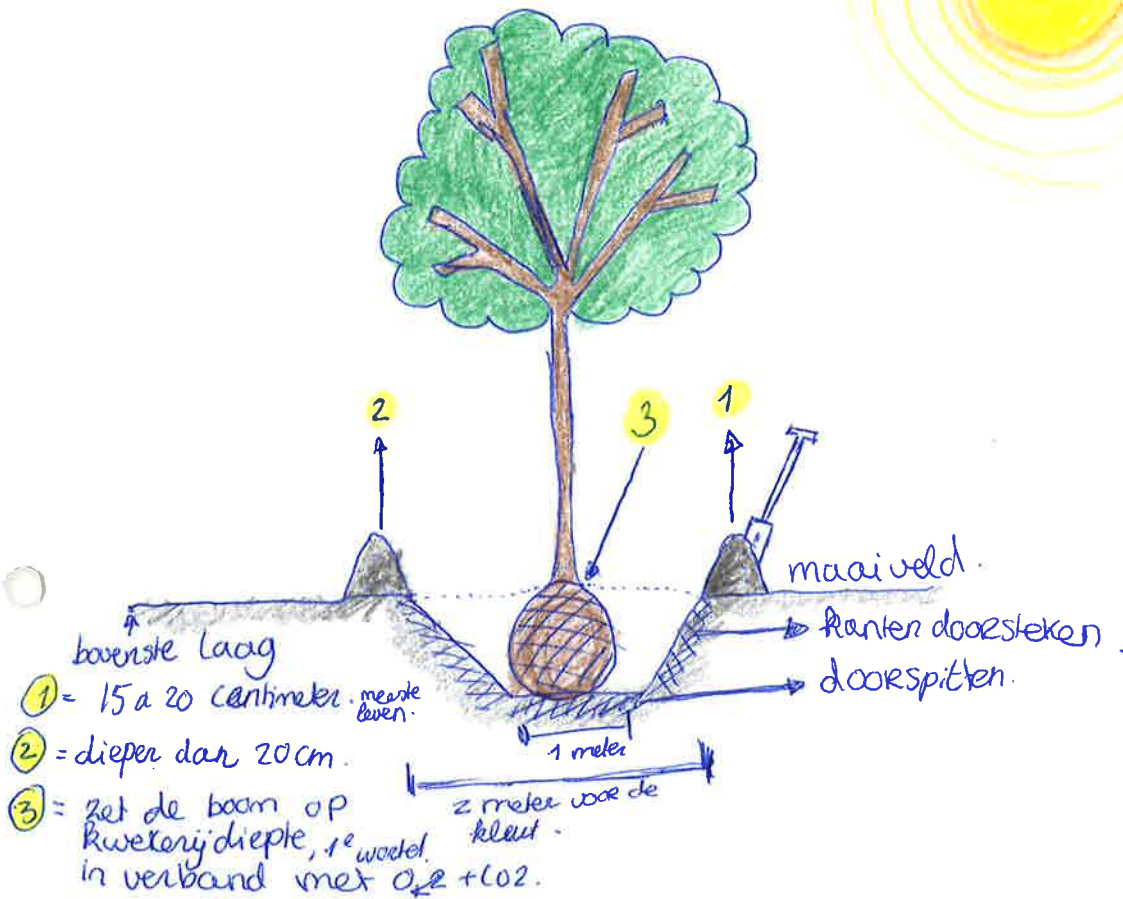 2
3
1
maaiveld.
kanten doorsteken
doorspitten.
bovenste laag
1 = 15 a 20 centimeter. meeste
leven.
2 = dieper dan 20cm.
3 = zet de boom op
kwekerijdiepte, 1e wortel.
in verband met O2 + CO2.
1 meter
2 meter voor de
kluit.